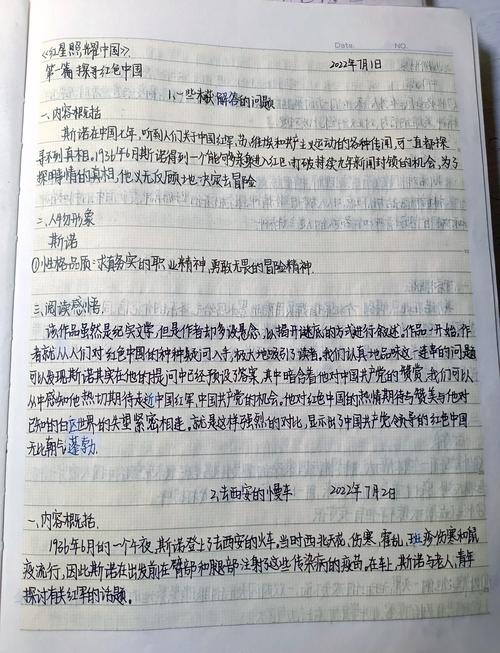 《红星照耀中国》
Date. NO.
第一篇 探寻红色中国 2022年7月1日
1.一些未获解答的问题
一、内容概括
斯诺在中国七年,听到人们关于中国红军、苏维埃和共产主义运动的各种传闻,可一直都探
寻不到真相。1936年6月斯诺得到一个能够乘乱进入红色,打破持续九年新闻封锁的机会,为了
探明事情的真相,他义无反顾地决定去冒险
二、人物形象
斯诺
①性格品质:求真务实的职业精神,勇敢无畏的冒险精神.
三.阅读感悟
该作品虽然是纪实文学,但是作者却多设悬念,以揭开谜底的方式进行叙述。作品一开始,作
者就从人们对红色中国的种种疑问入手,极大地吸引了读者,我们认真地品味这一连串的问题
可以发现,斯诺其实在他的提问中已经预设了答案,其中暗含着他对中国共产党的赞赏,我们可以
从中感知他热切期待走近中国红军、中国共产党的机会。他对红色中国的热情期待与赞美与他对
已知的白区世界的失望紧密相连。就是这样强烈的对比,显示出了中国共产党领导的红色中国
无比朝气蓬勃.
2.去西安的慢车 2022年7月2日
一、内容概括.
1936年6月的一个午夜,斯诺登上了去西安的火车。当时西北天花,伤寒,霍乱,斑疹伤寒和鼠
疫流行,因此斯诺在出发前在臂部和腿部注射了这些传染病的疫苗。在车上,斯诺与老人,青年
探讨有关红军的话题。